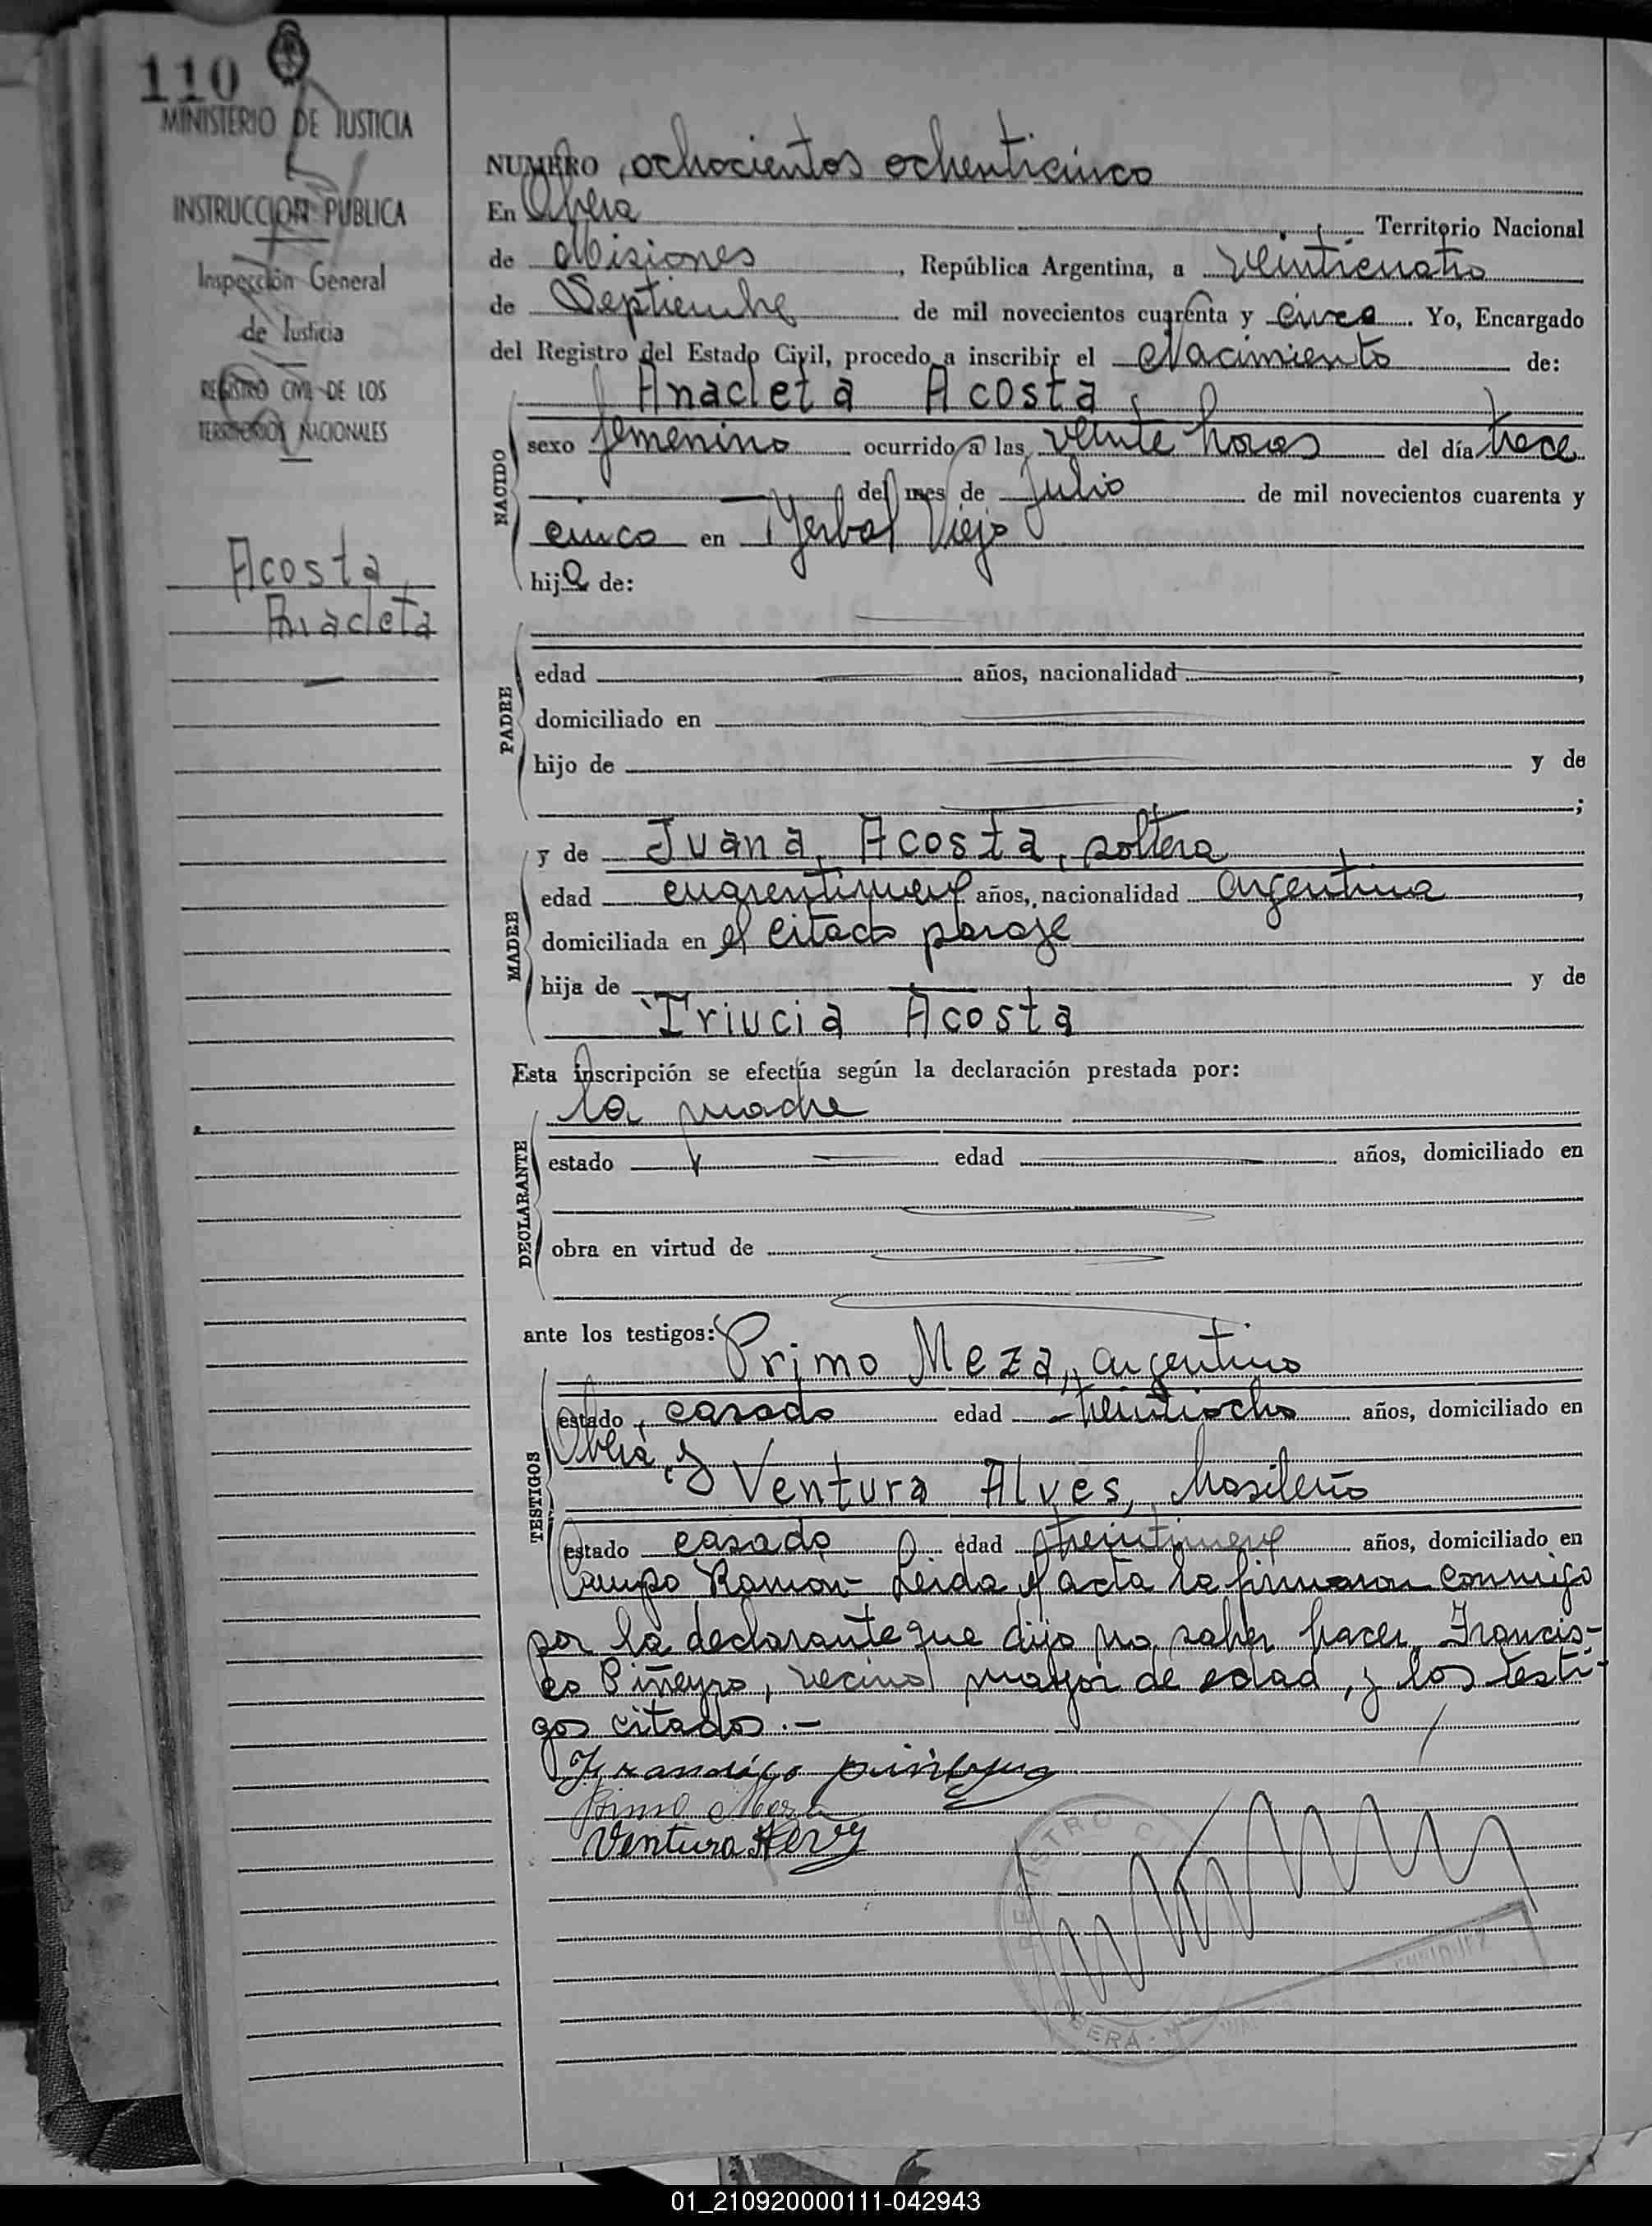 110
MINISTERIO DE JUSTICIA
INSTRUCCION PUBLICA
Inspección General
de Justicia
REGISTRO CIVIL DE LOS
TERRITORIOS NACIONALES
Acosta,
Anacleta
NUMERO ochocientos ochenticinco
En Oberá Territorio Nacional
de Misiones, República Argentina, a veinticuatro
de Septiembre de mil novecientos cuarenta y cinco. Yo, Encargado
del Registro del Estado Civil, procedo a inscribir el Nacimiento de:
Anacleta Acosta,
NACIDO
sexo femenino ocurrido a las veinte horas del día trece
del mes de Julio de mil novecientos cuarenta y
cinco en Yerbal Viejo
hija de:
PADRE
edad años, nacionalidad ,
domiciliado en
hijo de y de
;
MADRE
y de Juana Acosta, soltera
edad cuarentinueve años, nacionalidad argentina,
domiciliada en el citado paraje
hija de y de
Acosta
Esta inscripción se efectúa según la declaración prestada por:
la madre
DECLARANTE
estado edad años, domiciliado en
obra en virtud de
ante los testigos: Primo Meza, argentino
TESTIGOS
estado casado edad años, domiciliado en
Oberá y
Ventura Alves, brasileño
estado casado edad treintinueve años, domiciliado en
Campo Ramon- Leida el acta la firmaron conmigo
por la declarante que dijo no saber hacer, Francis-
co Piñeyro, vecino mayor de edad, y los testi-
gos citados.-
Francisco
Primo Meza
Ventura Alves
REGISTRO C
OBERA - M